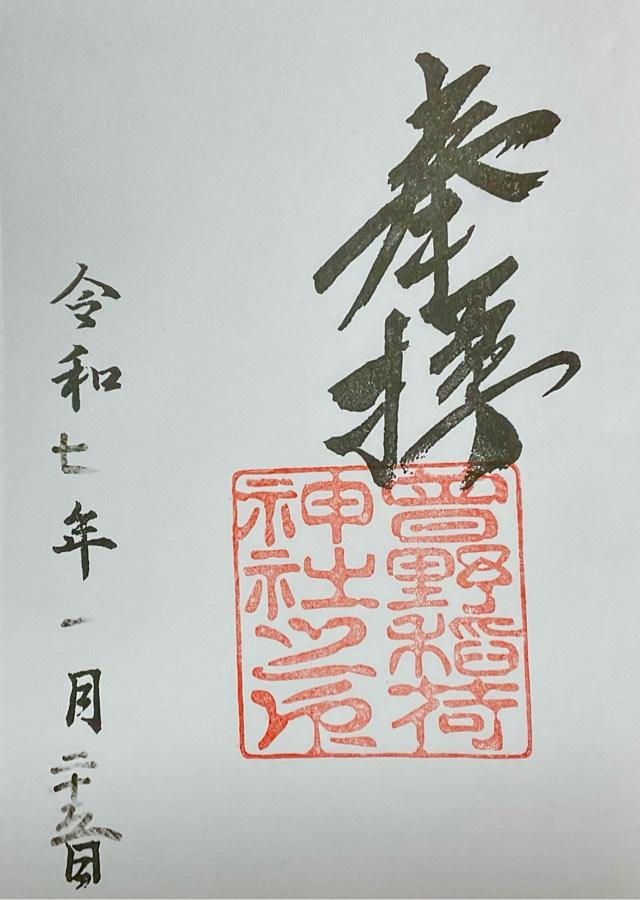 奉拝
曽野稲荷
神社之印
令和七年一月二十日